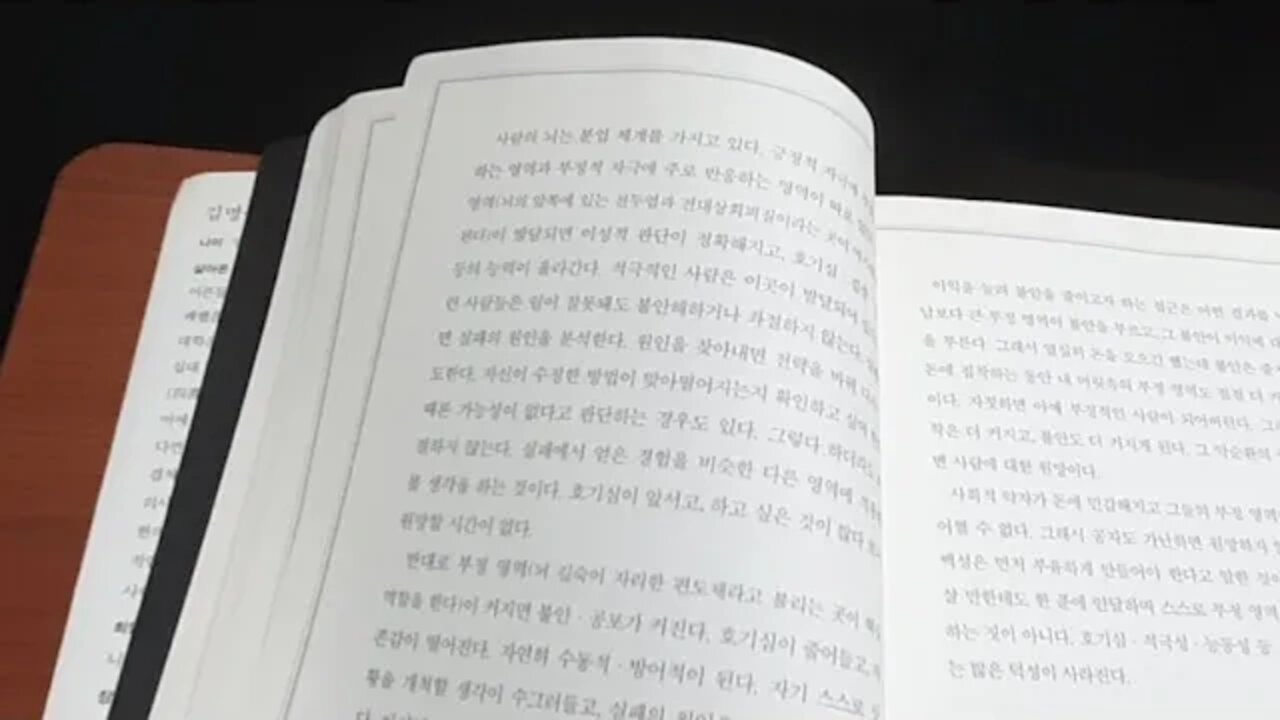 김명
나의
살아온
어른들
대학
실대
다면
사람의 뇌는 분업 체계를 가지고 있다. 긍정적 자극에
하는 영역과 부정적 자극에 주로 반응하는 영역이 따로
영역(뇌의 앞쪽에 있는 전두엽과 전대상회피질이라는 곳이
된다)이 발달되면 이성적 판단이 정확해지고, 호기심
등의 능력이 올라간다. 적극적인 사람은 이곳이 발달되어
런 사람들은 일이 잘못돼도 불안해하거나 좌절하지 않는다.
면 실패의 원인을 분석한다. 원인을 찾아내면 전략을 바꿔
도한다. 자신이 수정한 방법이 맞아떨어지는지 확인하고 싶어
때론 가능성이 없다고 판단하는 경우도 있다. 그렇다 하더라도
절하지 않는다. 실패에서 얻은 경험을 비슷한 다른 영역에
볼 생각을 하는 것이다. 호기심이 앞서고, 하고 싶은 것이 많다
원망할 시간이 없다.
반대로 부정 영역(뇌 깊숙이 자리한 편도체라고 불리는 곳이
역할을 한다)이 커지면 불안·공포가 커진다. 호기심이 줄어들고,
존감이 떨어진다. 자연히 수동적·방어적이 된다. 자기 스스로
황을 개척할 생각이 수그러들고, 실패의 원인을
이익을 늘려 불안을 줄이고자 하는 접근은 어떤 결과를
남보다 큰 부정 영역이 불안을 부르고, 그 불안이 이익에
을 부른다. 그래서 열심히 돈을 모으긴 했는데 불안은
돈에 집착하는 동안 내 머릿속의 부정 영역도 점점 더
이다. 자칫하면 아예 부정적인 사람이 되어버린다.
작은 더 커지고, 불안도 더 커지게 된다. 그 악순환의
변 사람에 대한 원망이다.
사회적 약자가 돈에 민감해지고 그들의 부정 영역
어쩔 수 없다. 그래서 공자도 가난하면 원망하지
백성은 먼저 부유하게 만들어야 한다고 말한
살 만한데도 한 푼에 안달하며 스스로 부정 영역
하는 것이 아니다. 호기심·적극성·능동성 등
는 많은 덕성이 사라진다.